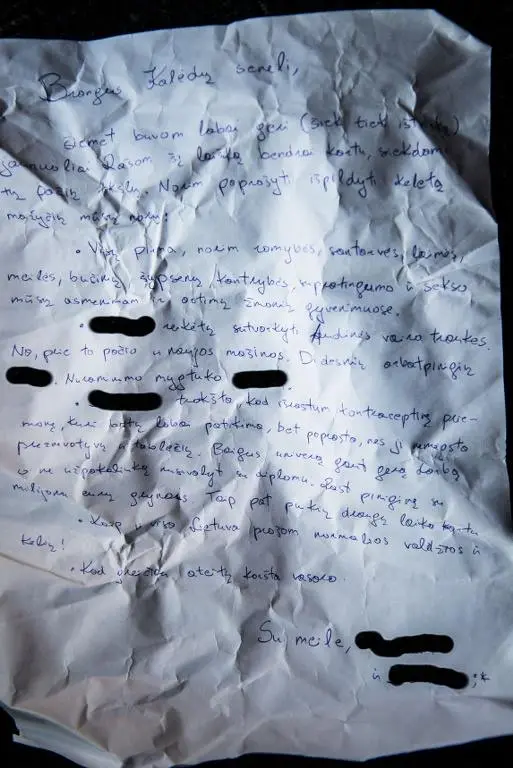 Brangus Kalėdų seneli,
šiemet buvom labai geri (šiek tiek ištvirkę)
jaunuoliai. Rašom šį laišką bendrai kartu, siekdami
tų pačių tikslų. Norim paprašyti išpildyti keletą
mažyčių mūsų norų:
• Visų pirma, norim ramybės, santarvės, laimės,
meilės, bučinių, šypsenų, kantrybės, supratingumo ir sekso
mūsų asmeniniam ir artimų žmonių gyvenimuose.
• reikėtų sutvarkyti vairo traukes.
No, prie to pačio ir naujos mašinos. Didesnių arbatpinigių
. Nuraminimo mygtuko .
• trokšta, kad išrastum kontracepcinę prie-
monę, kuri būtų labai patikima, bet paprasta, nes ji nemėgsta
prezervatyvų ir tablečių. Baigus universą gaut gerą darbą
o ne užpakalinką nusivalyt su diplomu. Rast piniginę su
milijonu eurų grynais. Taip pat puikių draugų laiko kartu
• Kaip ir visa Lietuva prašom normalios valdžios ir
kelių!
• Kad greičiau ateitų karšta vasara.
Su meile,
ir ;*